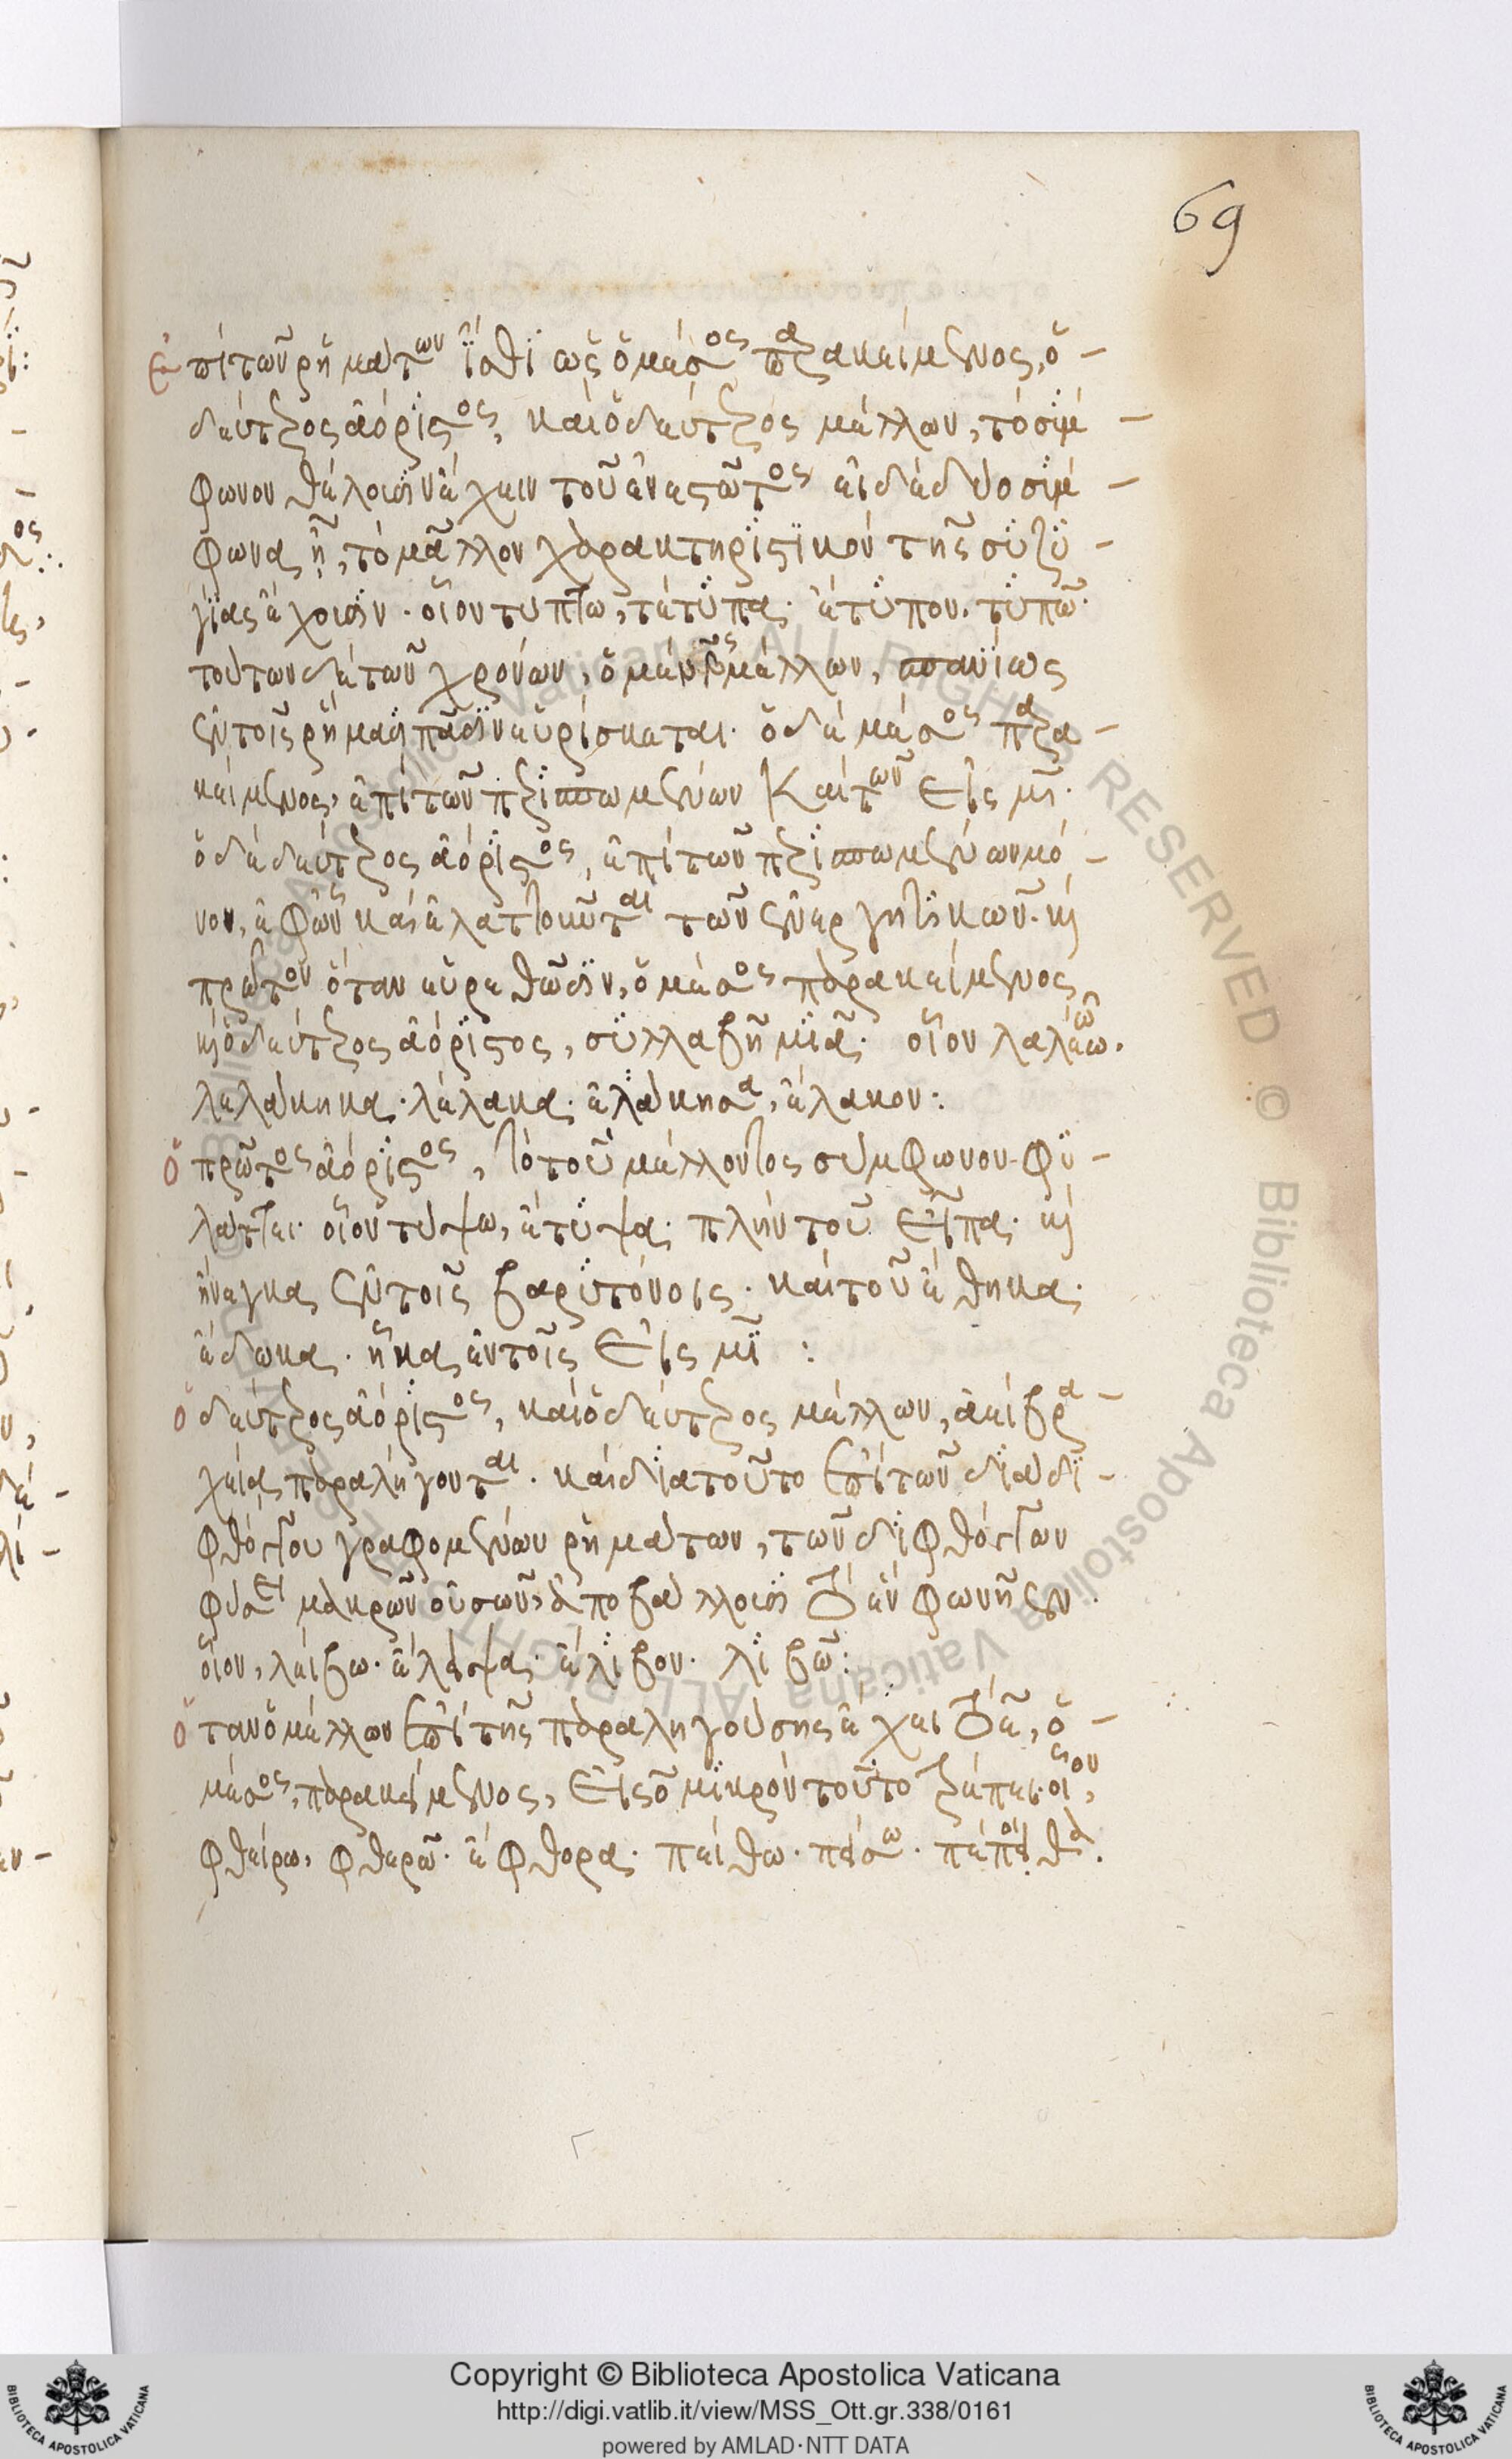 69
Ἐπὶ τῶν ῥημάτων ἴσθι ὡς ὁ μέσος παρακείμενος, ὁ -
δεύτερος ἀόριστος, καὶ ὁ δεύτερος μέλλων, τὸ σύμ -
φωνον θέλουσιν ἔχειν τοῦ ἐνεστῶτος εἰ δὲ δύο σύμ -
φωνα ᾖ, τὸ μᾶλλον χαρακτηριστικὸν τῆς συζυ -
γίας ἔχουσιν· οἷον τύπτω, τέτυπα· ἔτυπον. τυπῶ·
τούτων δὲ τῶν χρόνων, ὁ μὲν βος μέλλων, σπανίως
ἐν τοῖς ῥήμασι πᾶσιν εὑρίσκεται· ὁ δὲ μέσος παρα -
κείμενος, ἐπὶ τῶν περισπωμένων καὶ τῶν εἰς μι·
ὁ δὲ δεύτερος ἀόριστος, ἐπὶ τῶν περισπωμένων μό -
νον, ἀφ' ὧν καὶ ἐλαττοῦται τῶν ἐνεργητικῶν. καὶ
πρῶτον ὅταν εὑρεθῶσιν, ὁ μέσος παρακείμενος
καὶ ὁ δεύτερος ἀόριστος, συλλαβῇ μιᾷ· οἷον ληκέω.
λελάκηκα· λέλακα· ἐλάκησα, ἔλακον:
ὁ πρῶτος ἀόριστος, τὸ τοῦ μέλλοντος σύμφωνον φυ -
λάττει· οἷον τύψω, ἔτυψα· πλὴν τοῦ εἶπα· καὶ
ἤνεγκα ἐν τοῖς βαρυτόνοις· καὶ τοῦ ἔθηκα·
ἔδωκα· ἧκα ἐν τοῖς εἰς μι:
ὁ δεύτερος ἀόριστος, καὶ ὁ δεύτερος μέλλων, ἀεὶ βρα -
χείᾳ παραλήγονται· καὶ διατοῦτο ἐπὶ τῶν διὰ δι -
φθόγγου γραφομένων ῥημάτων, τῶν διφθόγγων
φύσει μακρῶν οὐσῶν, ἀποβάλλουσι τὸ ἓν φωνῆεν·
οἷον, λείβω· ἔλειψα· ἔλιβον· λιβῶ:
ὅταν ὁ μέλλων ἐπὶ τῆς παραληγούσης ἔχει τὸ ε, ὁ -
μέσος παρακείμενος, εἰς ο μικρὸν τοῦτο τρέπει· οἷον,
φθείρω, φθερῶ· ἔφθορα· πείθω· πείσω· πέποιθα.
Copyright © Biblioteca Apostolica Vaticana
http://digi.vatlib.it/view/MSS_Ott.gr.338/0161
powered by AMLAD·NTT DATA